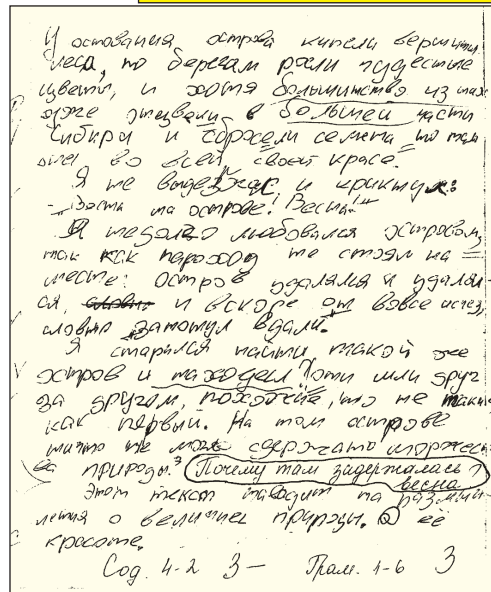 У основания острова кипели вершины
леса, по берегам росли чудестые
цветы, и хотя большинство из них
уже отцвели в большей части
Сибири и сбросели семена то там
они во всей своей красе.
Я не выдержас и крикнул:
- Весна на острове! Весна!
Я недолго любовался островом,
так как пароход не стоял на
месте: остров удалялся и удалял-
ся, и вскоре он вовсе исчез,
словно затонул вдали.
Я старался найти такой же
остров и находил. Они шли друг
за другом, похожие, но не такие
как первый. На том острове
ничто не могло сдержать торжест-
ва природы. Почему там задержалась
весна?
Этот текст наводит на размыш-
ления о величии природы. О её
красоте.
Сод. 4-2 3- Грам. 1-6 3